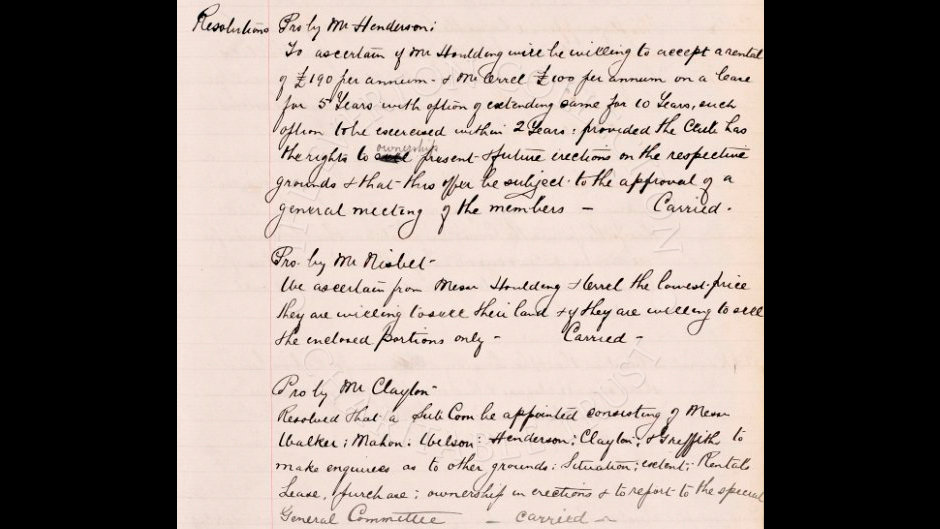 Resolutions Pro by Mr Henderson:
To ascertain if Mr Houlding will be willing to accept a rental
of £190 per annum - & Mr Orrel £100 per annum on a lease
for 5 Years with option of extending same for 10 Years, such
option to be exercised within 2 Years: provided the Club has
the rights to ownership present & future erections on the respective
grounds & that this offer be subject to the approval of a
general meeting of the members - Carried.
Pro. by Mr Nisbet -
We ascertain from Messrs Houlding & Orrel the lowest price
they are willing to sell their land & if they are willing to sell
the enclosed portions only - Carried -
Pro by Mr Clayton -
Resolved that a Sub Com be appointed consisting of Messrs
Walker; Mahon: Wilson: Henderson; Clayton; & Griffiths to
make enquiries as to other grounds: Situation; extent; Rentals
Lease, purchase; ownership in erections & to report to the special
General Committee - carried -